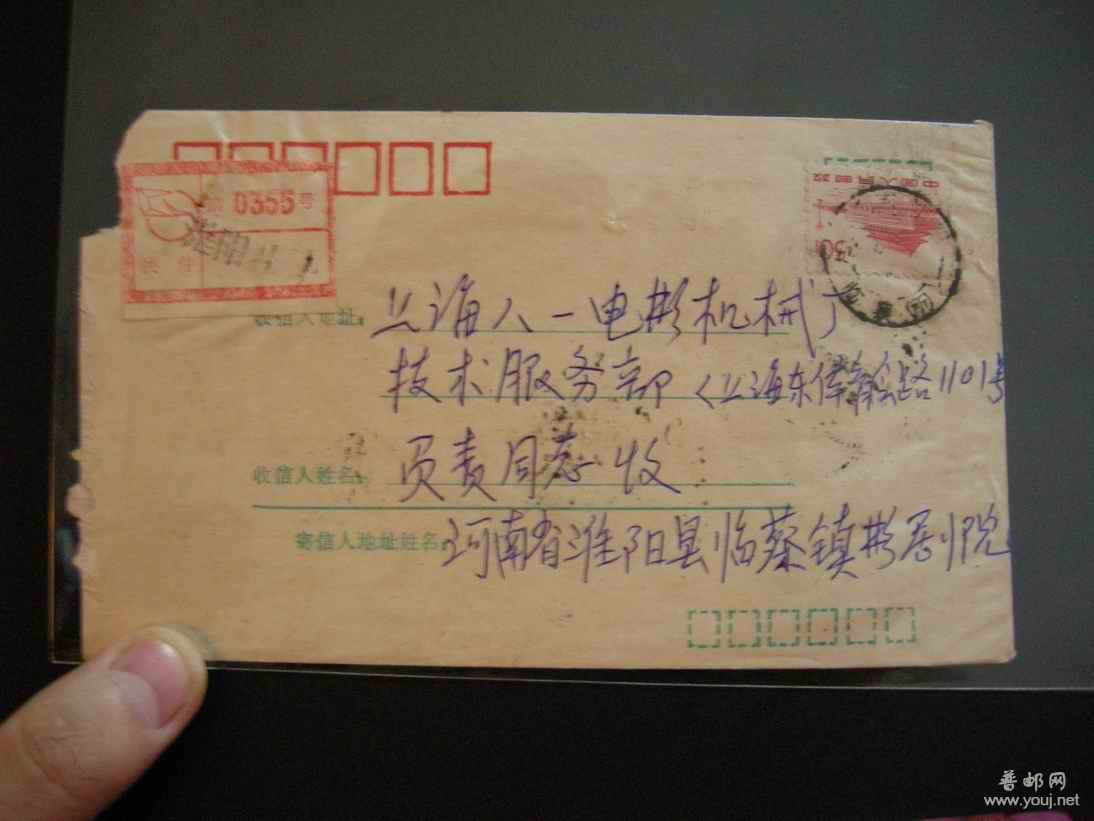 0356号
淮阳
中国人民邮政
50
收信人地址：上海八一电影机械厂
技术服务部（上海东体育会路1101号
收信人姓名：负责同志收
寄信人地址姓名：河南省淮阳县临蔡镇影剧院
普邮网
www.youj.net